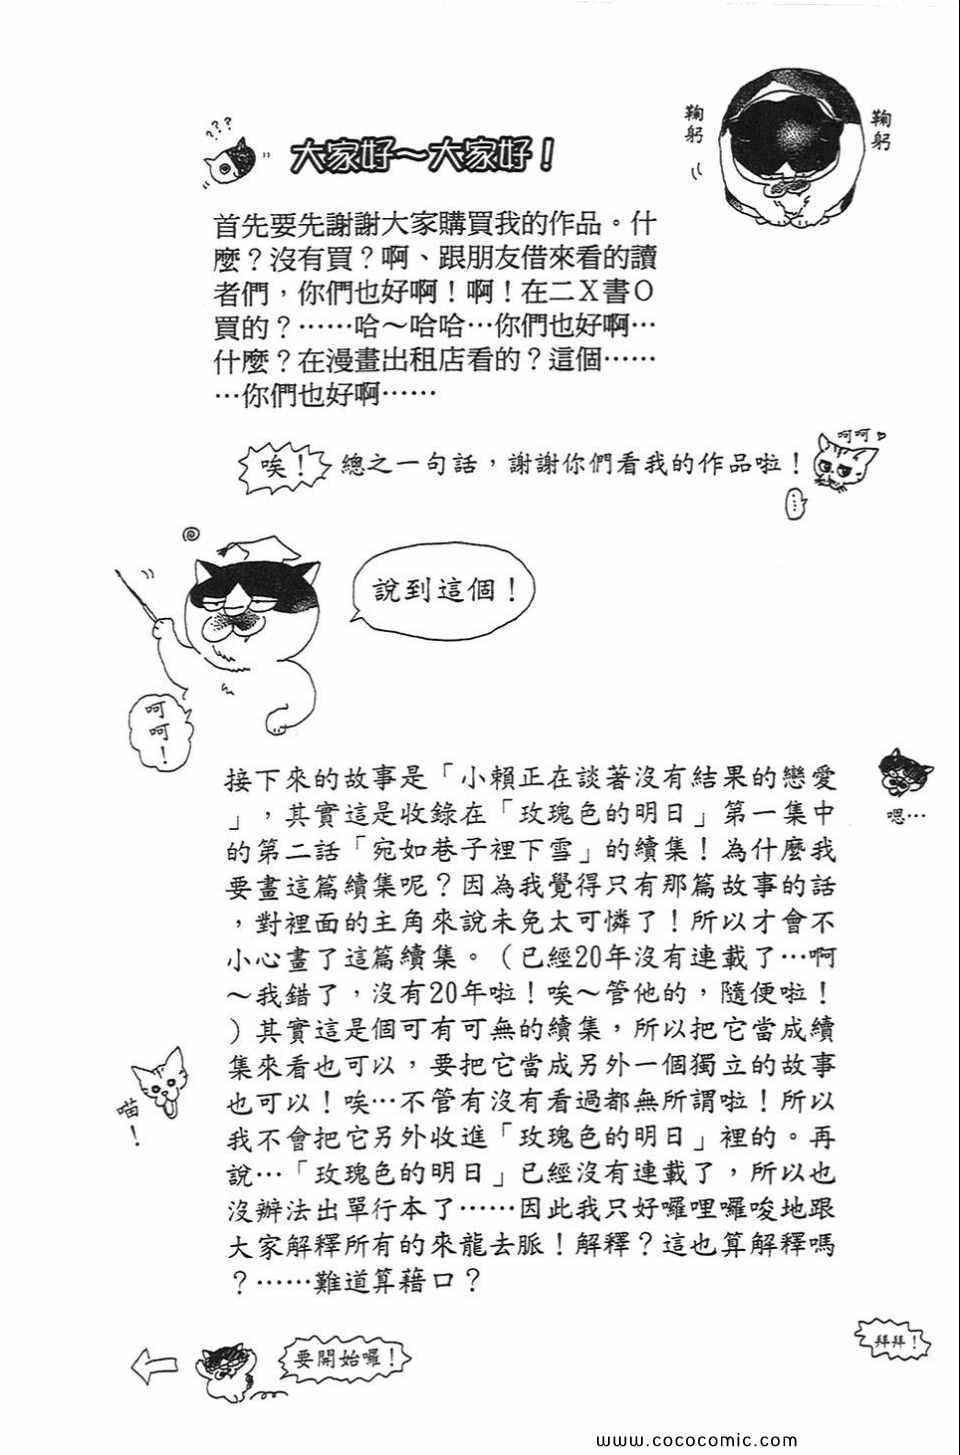 ???
大家好～大家好！
鞠躬
鞠躬
首先要先謝謝大家購買我的作品。什
麼？沒有買？啊、跟朋友借來看的讀
者們，你們也好啊！啊！在二X書O
買的？……哈～哈哈…你們也好啊…
什麼？在漫畫出租店看的？這個……
…你們也好啊……
唉！
總之一句話，謝謝你們看我的作品啦！
呵呵♥
…
說到這個！
呵呵！
接下來的故事是「小賴正在談著沒有結果的戀愛
」，其實這是收錄在「玫瑰色的明日」第一集中
的第二話「宛如巷子裡下雪」的續集！為什麼我
要畫這篇續集呢？因為我覺得只有那篇故事的話
，對裡面的主角來說未免太可憐了！所以才會不
小心畫了這篇續集。（已經20年沒有連載了…啊
～我錯了，沒有20年啦！唉～管他的，隨便啦！
）其實這是個可有可無的續集，所以把它當成續
集來看也可以，要把它當成另外一個獨立的故事
也可以！唉…不管有沒有看過都無所謂啦！所以
我不會把它另外收進「玫瑰色的明日」裡的。再
說…「玫瑰色的明日」已經沒有連載了，所以也
沒辦法出單行本了……因此我只好囉哩囉唆地跟
大家解釋所有的來龍去脈！解釋？這也算解釋嗎
？……難道算藉口？
嗯…
喵！
要開始囉！
拜拜！
www.cococomic.com